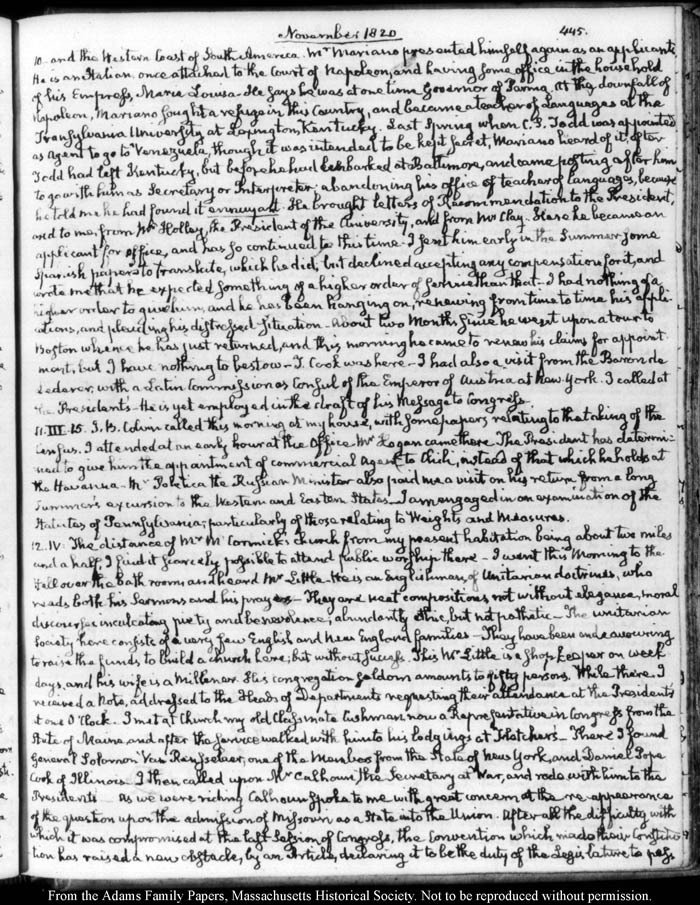 November 1820
445.
10. and the Western Coast of South America. Mr Mariano presented himself again as an applicant.
He is an Italian, once attached to the Court of Napoleon, and having some office in the household
of his Empress, Maria Louisa. He says he was at one time Governor of Parma. At the downfall of
Napoleon, Mariano sought a refuge in this Country, and became a teacher of Languages at the
Transylvania University at Lexington, Kentucky. Last Spring when C. S. Todd was appointed
as Agent to go to Venezuela, though it was intended to be kept secret, Mariano heard of it, after
Todd had left Kentucky, but before he had embarked at Baltimore, and came posting after him
to go with him as Secretary or Interpreter; abandoning his office of teacher of languages, because
he told me he had found it ennuyant. He brought letters of Recommendation to the President,
and to me, from Mr Holley, the President of the University, and from Mr Clay. Here he became an
applicant for office, and has so continued to this time. I sent him early in the Summer some
Spanish papers to translate, which he did, but declined accepting any compensation for it, and
wrote me that he expected something of a higher order of service than that— I had nothing of a
higher order to give him, and he has been hanging on, renewing from time to time his appli-
cations, and pleading his distressed situation. About two Months since he went upon a tour to
Boston whence he has just returned, and this morning he came to renew his claims for appoint-
ment, but I have nothing to bestow— J. Cook was here— I had also a visit from the Baron de
Lederer, with a Latin Commission as Consul of the Emperor of Austria at New York. I called at
the President's— He is yet employed in the draft of his Message to Congress.
11. III. 15. J. B. Colvin called this morning at my house, with some papers relating to the taking of the
Census. I attended at an early hour at the Office. Mr Hogan came there. The President has determi-
ned to give him the appointment of commercial Agent to Chili, instead of that which he holds at
the Havanna— Mr Poletica the Russian Minister also paid me a visit on his return from a long
Summer's excursion to the Western and Eastern States. I am engaged in an examination of the
Statutes of Pennsylvania; particularly of those relating to Weights and Measures.
12. IV. The distance of Mr McCormick's church from my present habitation being about two miles
and a half, I find it scarcely possible to attend public worship there— I went this Morning to the
Hall over the bath rooms and heard Mr Little. He is an Englishman, of Unitarian doctrines, who
reads both his Sermons and his prayers— They are neat compositions not without elegance, moral
discourses inculcating piety and benevolence; abundantly ethic, but not pathetic— The unitarian
Society here consists of a very few English and New England families— They have been endeavouring
to raise the funds to build a church here; but without success. This Mr Little is a shop keeper on week
days, and his wife is a Millener. His congregation seldom amounts to fifty persons. While there, I
received a Note, addressed to the Heads of Departments requesting their attendance at the President's
at one O'Clock. I met at Church my old Classmate Cushman now a Representative in Congress from the
State of Maine, and after the service walked with him to his lodgings at Fletcher's— There I found
General Solomon Van Rensselaer, one of the Members from the State of New York, and Daniel Pope
Cook of Illinois. I then called upon Mr Calhoun, the Secretary at War, and rode with him to the
President's— As we were riding Calhoun spoke to me with great concern at the re-appearance
of the question upon the admission of Missouri as a State into the Union. After all the difficulty with
which it was compromised at the last Session of Congress, the Convention which made their Constitu-
tion has raised a new obstacle, by an Article, declaring it to be the duty of the Legislature to pass
From the Adams Family Papers, Massachusetts Historical Society. Not to be reproduced without permission.